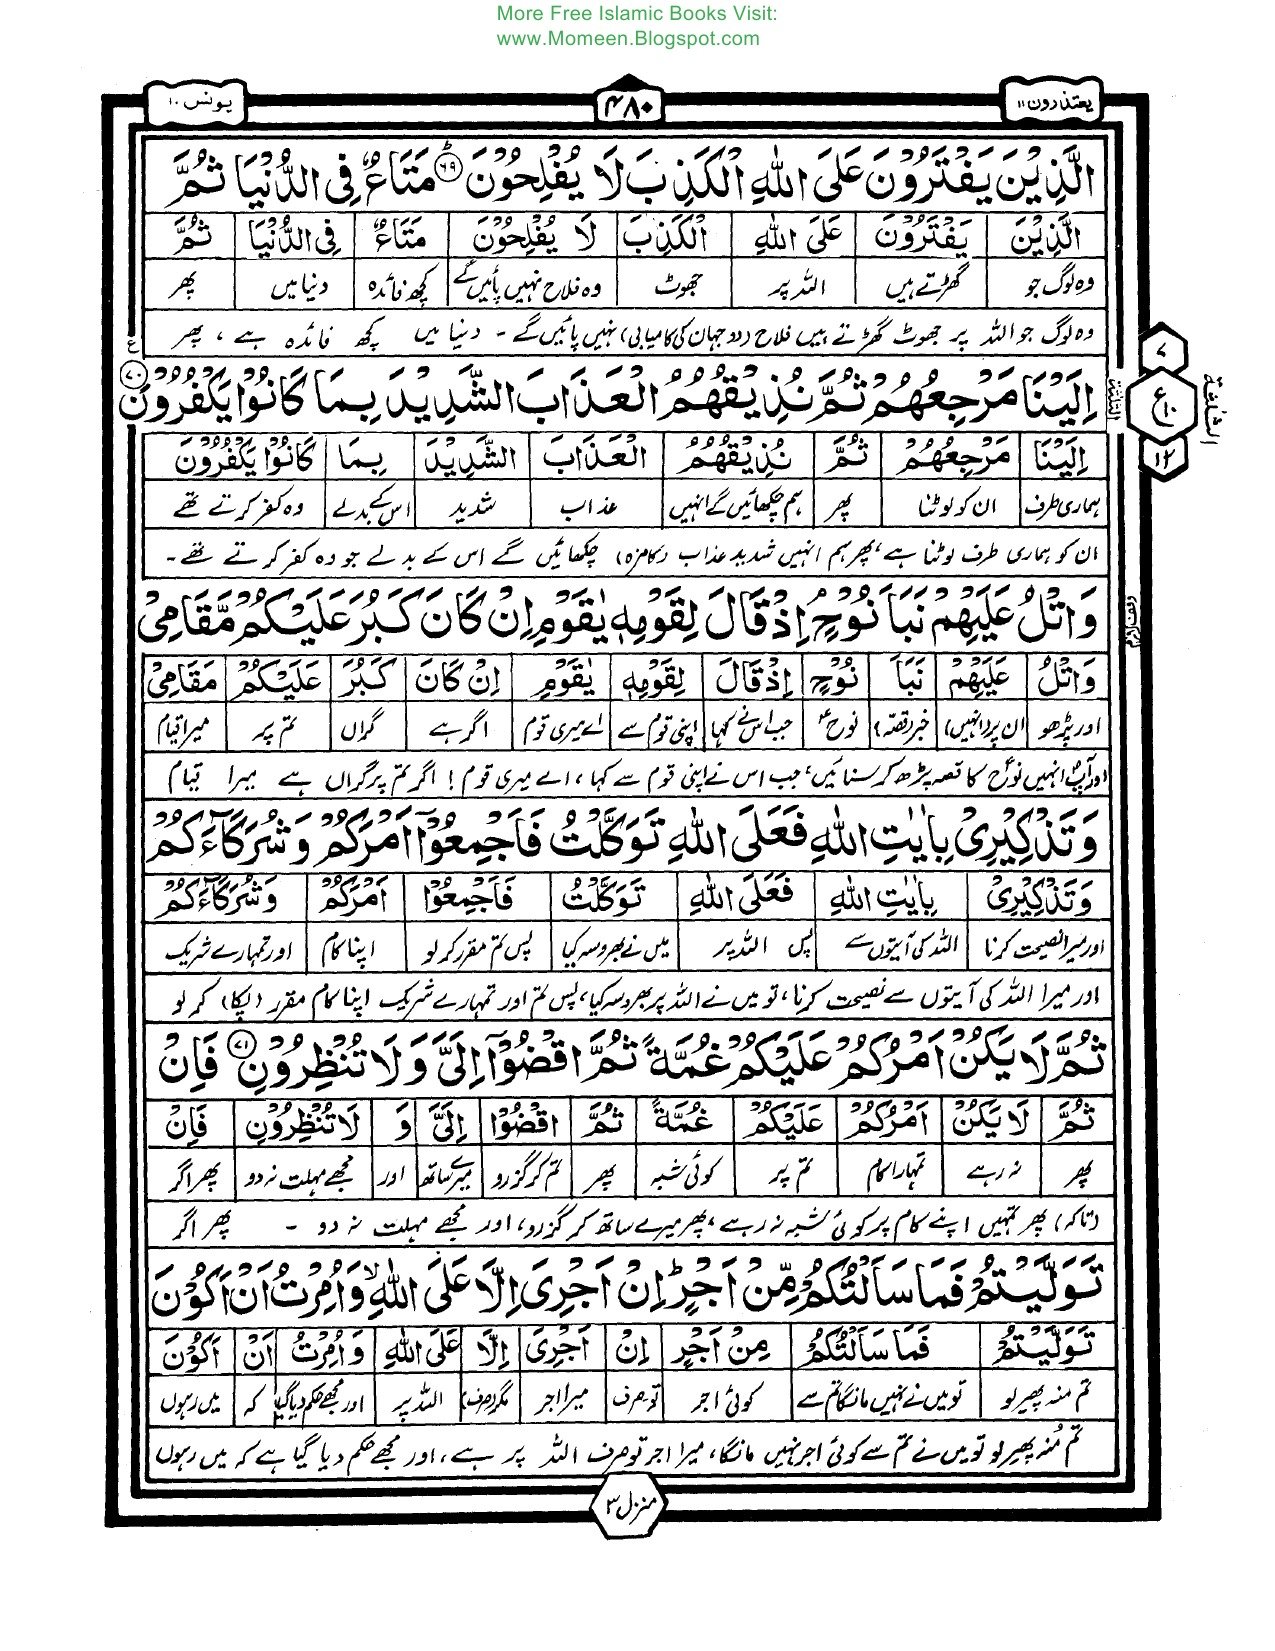 More Free Islamic Books Visit:
www.Momeen.Blogspot.com
یعتذرون ۱۱
۴۸۰
یونس ۱۰
الَّذِیْنَ یَفْتَرُوْنَ عَلَی اللّٰهِ الْكَذِبَ لَا یُفْلِحُوْنَ ۶۹ مَتَاعٌ فِی الدُّنْیَا ثُمَّ
الَّذِیْنَ یَفْتَرُوْنَ عَلَی اللّٰهِ الْكَذِبَ لَا یُفْلِحُوْنَ مَتَاعٌ فِی الدُّنْیَا ثُمَّ
وہ لوگ جو گھڑتے ہیں اللہ پر جھوٹ وہ فلاح نہیں پائیں گے کچھ فائدہ دنیا میں پھر
وہ لوگ جو اللہ پر جھوٹ گھڑتے ہیں فلاح (دو جہان کی کامیابی) نہیں پائیں گے ۔ دنیا میں کچھ فائدہ ہے ، پھر
اِلَیْنَا مَرْجِعُهُمْ ثُمَّ نُذِیْقُهُمُ الْعَذَابَ الشَّدِیْدَ بِمَا كَانُوْا یَكْفُرُوْنَ ۷۰
ع
۷
ع ۱۰
۱۲
الثلثة
اِلَیْنَا مَرْجِعُهُمْ ثُمَّ نُذِیْقُهُمُ الْعَذَابَ الشَّدِیْدَ بِمَا كَانُوْا یَكْفُرُوْنَ
ہماری طرف ان کو لوٹنا پھر ہم چکھائیں گے انہیں عذاب شدید اس کے بدلے وہ کفر کرتے تھے
ان کو ہماری طرف لوٹنا ہے، پھر ہم انہیں شدید عذاب (کا مزہ) چکھائیں گے اس کے بدلے جو وہ کفر کرتے تھے ۔
وَاتْلُ عَلَیْهِمْ نَبَاَ نُوْحٍ اِذْ قَالَ لِقَوْمِهٖ یٰقَوْمِ اِنْ كَانَ كَبُرَ عَلَیْكُمْ مَّقَامِیْ
وَاتْلُ عَلَیْهِمْ نَبَاَ نُوْحٍ اِذْ قَالَ لِقَوْمِهٖ یٰقَوْمِ اِنْ كَانَ كَبُرَ عَلَیْكُمْ مَقَامِیْ
اور پڑھو ان پر (انہیں) خبر (قصہ) نوحؑ جب اس نے کہا اپنی قوم سے اے میری قوم اگر ہے گراں تم پر میرا قیام
اور آپؐ انہیں نوحؑ کا قصہ پڑھ کر سنائیں، جب اس نے اپنی قوم سے کہا ، اے میری قوم ! اگر تم پر گراں ہے میرا قیام
وَتَذْكِیْرِیْ بِاٰیٰتِ اللّٰهِ فَعَلَی اللّٰهِ تَوَكَّلْتُ فَاَجْمِعُوْۤا اَمْرَكُمْ وَشُرَكَآءَكُمْ
وَتَذْكِیْرِیْ بِاٰیٰتِ اللّٰهِ فَعَلَی اللّٰهِ تَوَكَّلْتُ فَاَجْمِعُوْا اَمْرَكُمْ وَشُرَكَآءَكُمْ
اور میرا نصیحت کرنا اللہ کی آیتوں سے پس اللہ پر میں نے بھروسہ کیا پس تم مقرر کر لو اپنا کام اور تمہارے شریک
اور میرا اللہ کی آیتوں سے نصیحت کرنا، تو میں نے اللہ پر بھروسہ کیا، پس تم اور تمہارے شریک اپنا کام مقرر (پکا) کر لو
ثُمَّ لَا یَكُنْ اَمْرُكُمْ عَلَیْكُمْ غُمَّةً ثُمَّ اقْضُوْۤا اِلَیَّ وَلَا تُنْظِرُوْنِ ۷۱ فَاِنْ
ثُمَّ لَا یَكُنْ اَمْرُكُمْ عَلَیْكُمْ غُمَّةً ثُمَّ اقْضُوْا اِلَیَّ وَ لَا تُنْظِرُوْنِ فَاِنْ
پھر نہ رہے تمہارا کام تم پر کوئی شبہ پھر تم کر گزرو میرے ساتھ اور مجھے مہلت نہ دو پھر اگر
(تاکہ) پھر تمہیں اپنے کام پر کوئی شبہ نہ رہے ، پھر میرے ساتھ کر گزرو، اور مجھے مہلت نہ دو ۔ پھر اگر
تَوَلَّیْتُمْ فَمَا سَاَلْتُكُمْ مِّنْ اَجْرٍ ؕ اِنْ اَجْرِیَ اِلَّا عَلَی اللّٰهِ ۙ وَاُمِرْتُ اَنْ اَكُوْنَ
تَوَلَّیْتُمْ فَمَا سَاَلْتُكُمْ مِنْ اَجْرٍ اِنْ اَجْرِیَ اِلَّا عَلَی اللّٰهِ وَاُمِرْتُ اَنْ اَكُوْنَ
تم منہ پھیر لو تو میں نے نہیں مانگا تم سے کوئی اجر تو صرف میرا اجر مگر (صرف) اللہ پر اور مجھے حکم دیا گیا کہ میں رہوں
تم منہ پھیر لو تو میں نے تم سے کوئی اجر نہیں مانگا، میرا اجر تو صرف اللہ پر ہے ، اور مجھے حکم دیا گیا ہے کہ میں رہوں
منزل ۳